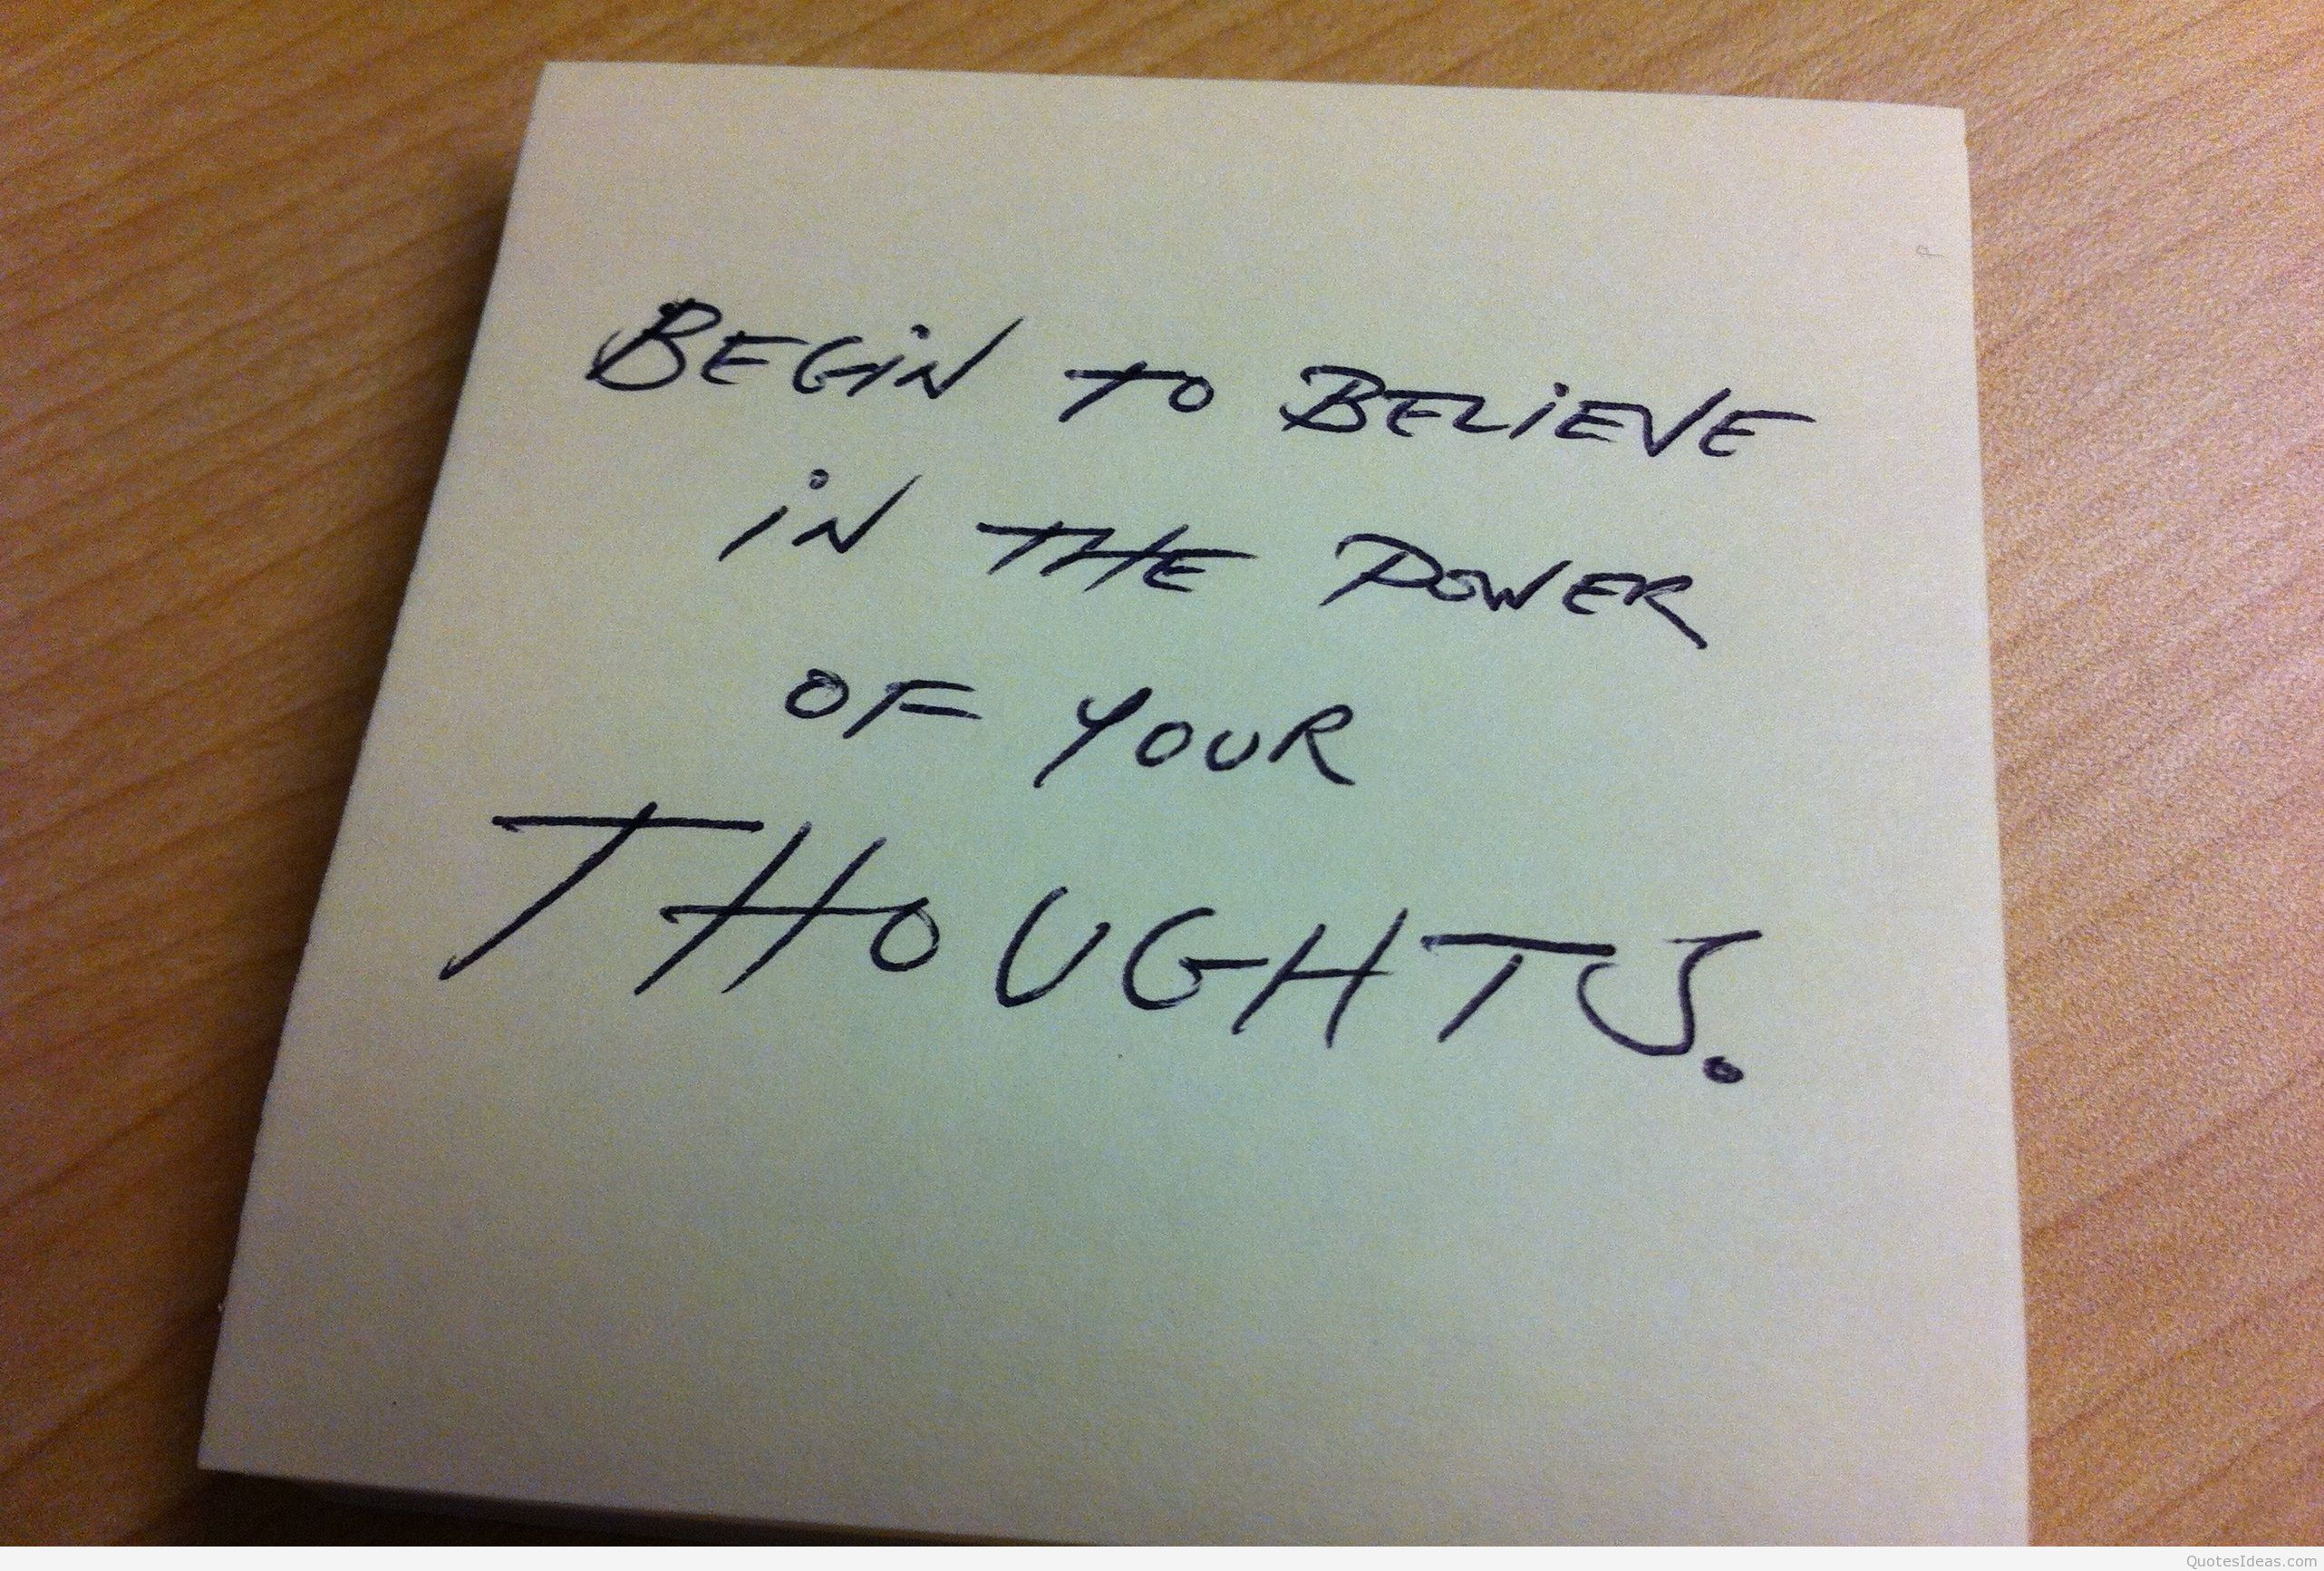 BEGiN TO BELiEVE
iN THE POWER
OF YOUR
THOUGHTS.
QuotesIdeas.com